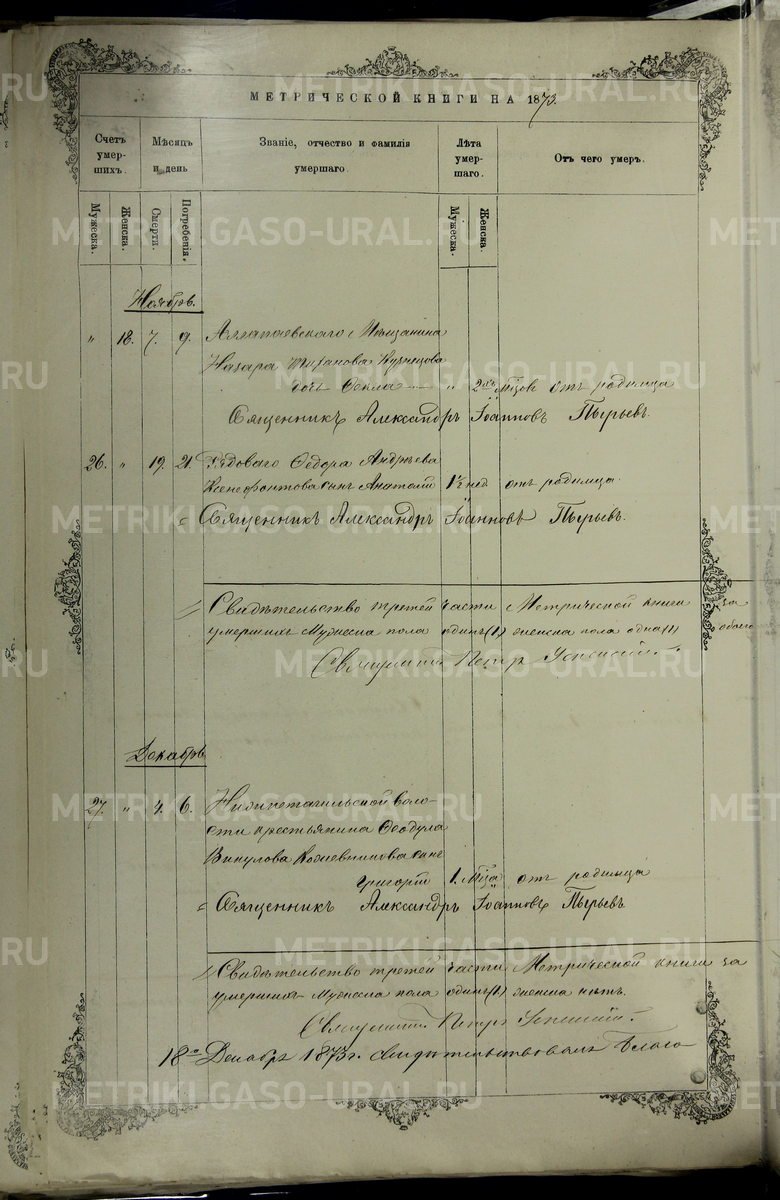 МЕТРИЧЕСКОЙ КНИГИ НА 1873.
Счетъ умер-шихъ.
Мѣсяцъ и день
Званіе, отчество и фамилія умершаго.
Лѣта умер-шаго.
Отъ чего умеръ.
Мужеска.
Женска.
Смерти.
Погребенія.
Мужеска.
Женска.
Ноябрь.
" 18. 7. 9. Алапаевскаго Мѣщанина
Назара Кузнецова
дочь Ѳекла " 2хъ мцовъ отъ родимца
Священникъ Александръ Іоанновъ Пырьевъ.
26. " 19. 21. Рядоваго Ѳедора Андрѣева
Ксенофонтова сынъ Анатолій 1½ нед отъ родимца.
Священникъ Александръ Іоанновъ Пырьевъ.
Свидѣтельство третей части Метрической книги за
умершихъ Мужеска пола одинъ (1) женска пола одна (1) обоего
Свящ. Петръ
Декабрь
27. " 4. 6. Нижнетагильской воло-
сти крестьянина Ѳеодула
Викулова Кожевникова сынъ
Григорій 1. мца отъ родимца
Священникъ Александръ Іоанновъ Пырьевъ.
Свидѣтельство третей части Метрической книги за
умершихъ Мужеска пола одинъ (1) женска нѣтъ.
Свящ. Петръ
18го Декабря 1873 г. свидѣтельствовалъ Благо
METRIKI.GASO-URAL.RU